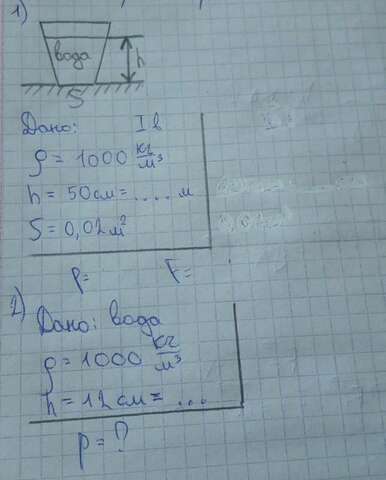 1)
вода
h
S
Дано: I в
ρ = 1000 кг/м³
h = 50 см = .... м
S = 0,02 м²
p = F =
2) Дано: вода
ρ = 1000 кг/м³
h = 12 см = ...
p = ?